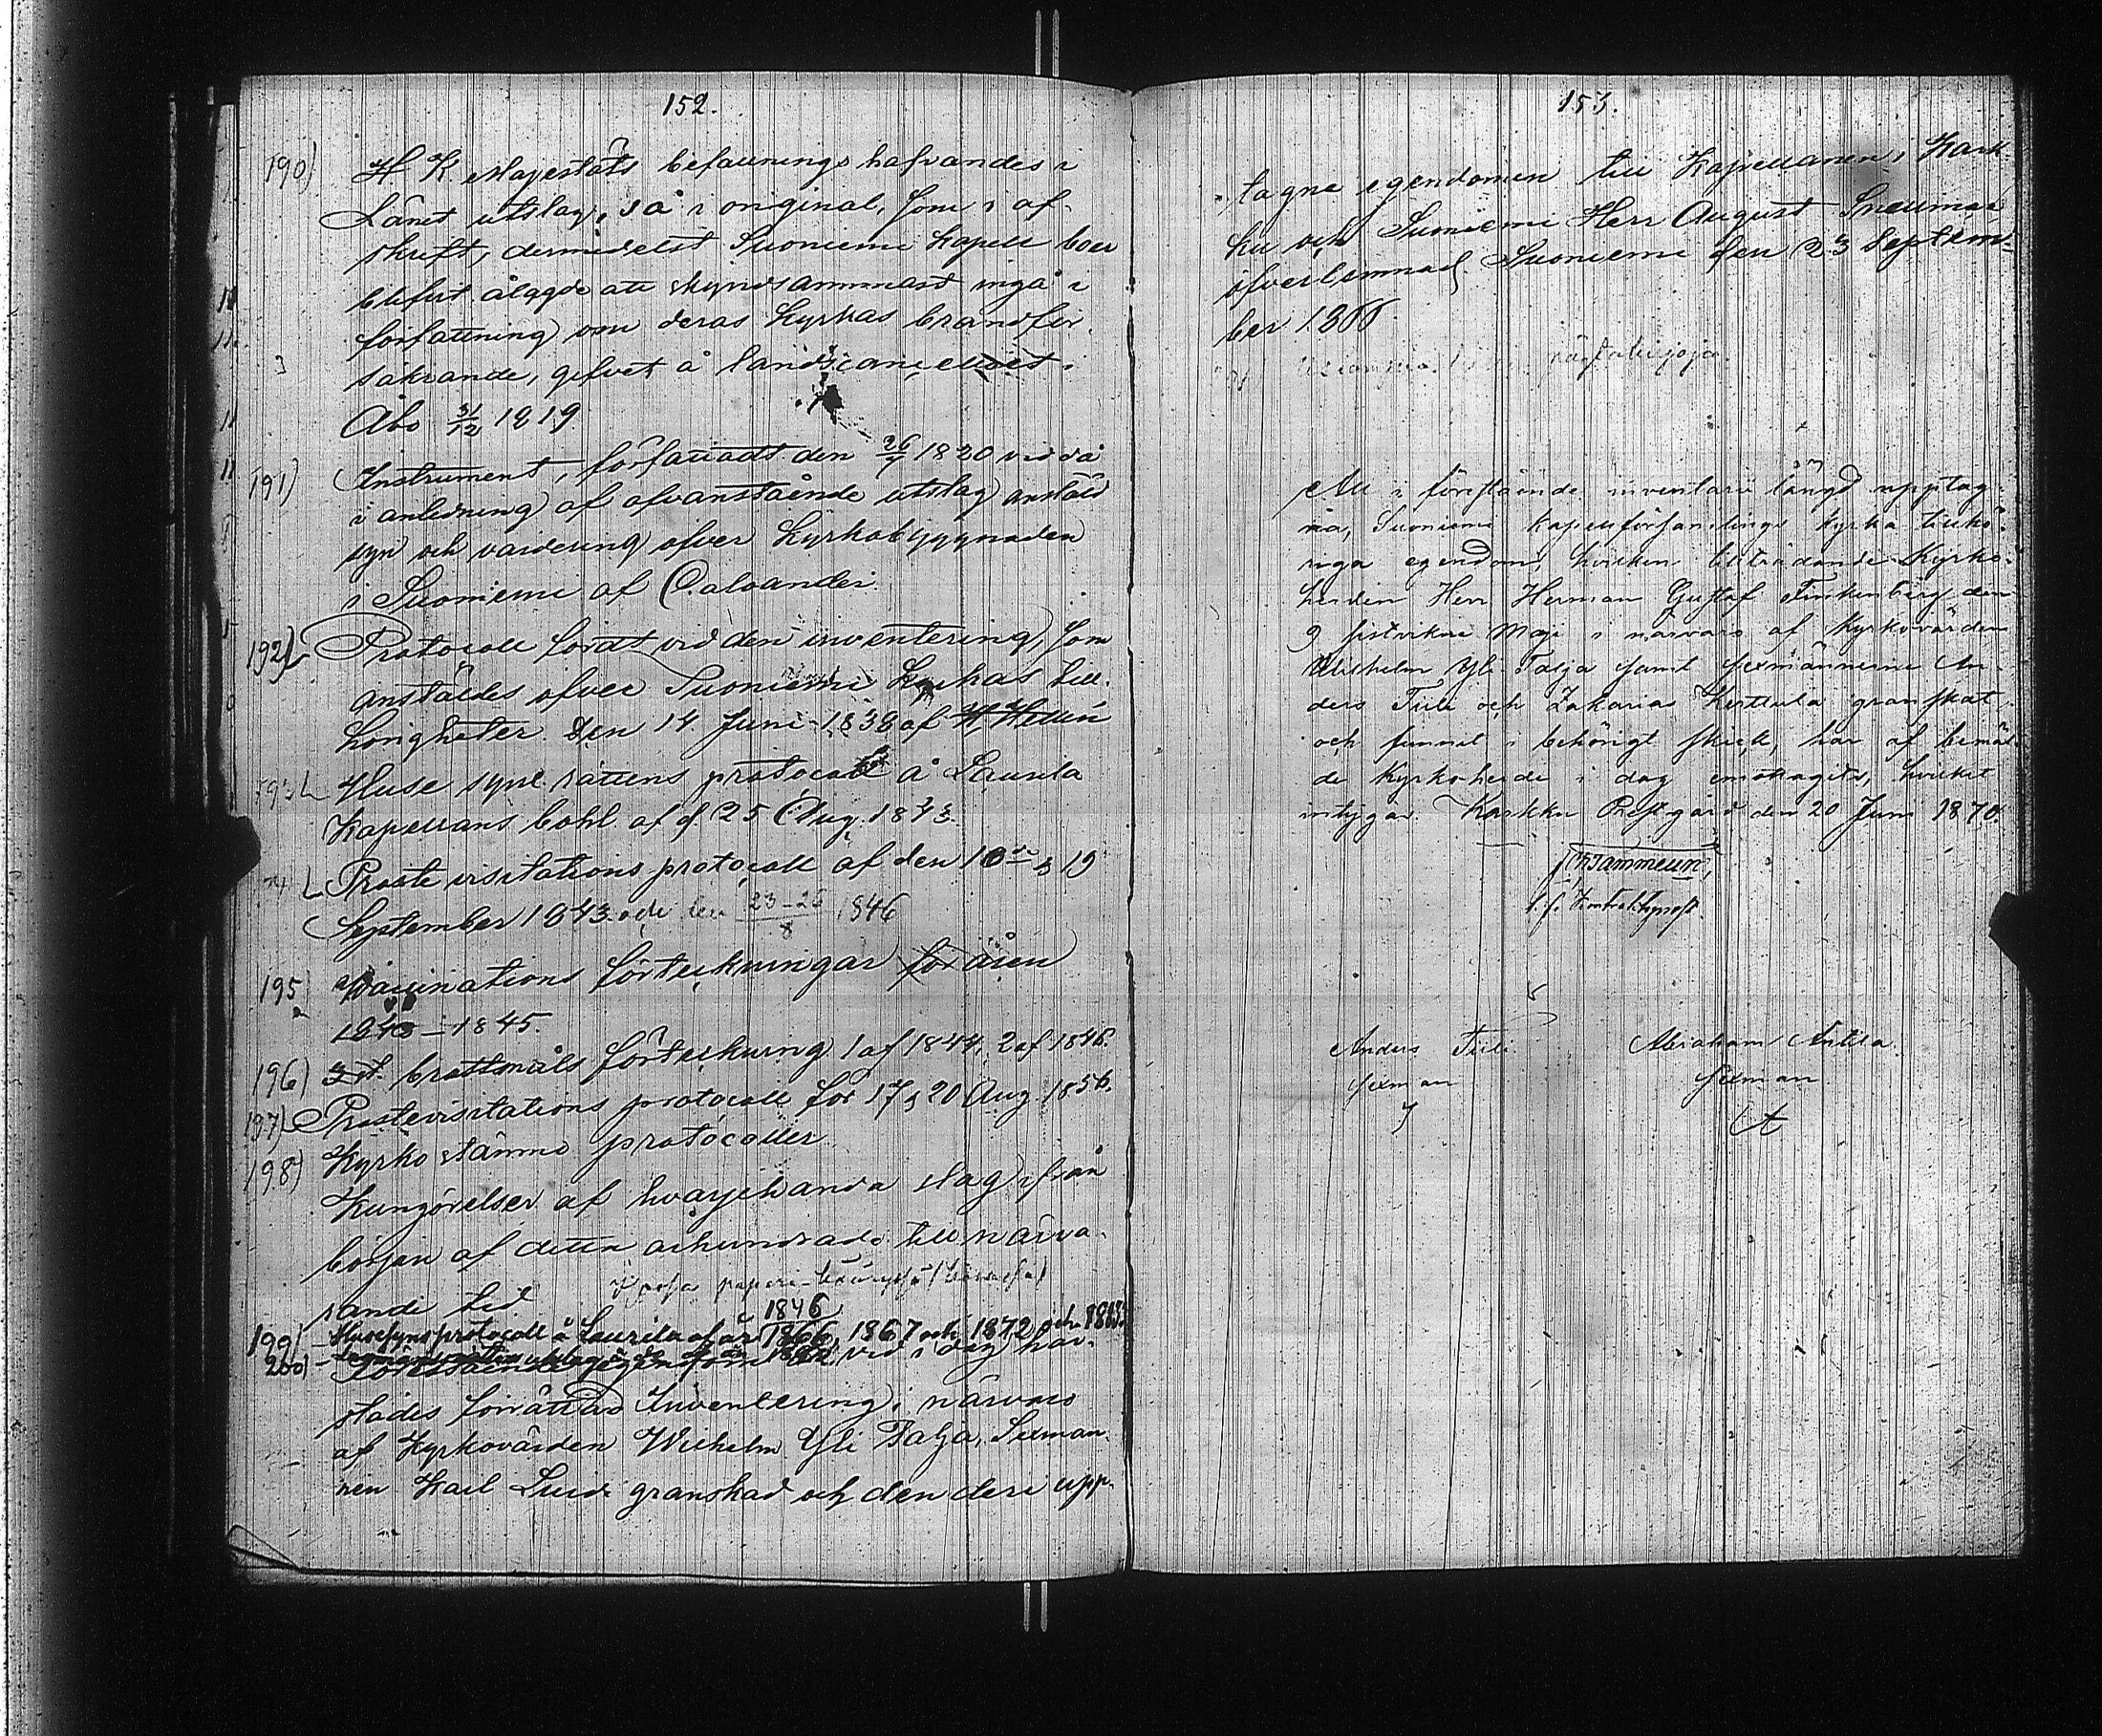 152.
190) H K Majestäts befallningshafvandes i
Länet utslag, så i original, som i af-
skrift, dermedelst Suoniemi Kapell boer
blifvit ålagde att skyndsammast ingå i
författning om deras Kyrkas brandför-
säkrande, gifvet å landscancelliet i
Åbo 31/12 1819
191) Instrument, författadt den 26/7 1820 vid då
i anledning af ofvanstående utslag anstäld
syn och värdering öfver Kyrkobyggnaden
i Suoniemi af Caloander.
192) Protocoll fördt vid den inventering, som
anstäldes öfver Suoniemi Kyrkas till-
hörigheter den 14 Juni 1838 af H Hellén
193 Huse syne rättens protocoll å Laurila
Kapellans bohl af d. 25 Aug. 1843.
Proste visitations protocoll af den 18 & 19
September 1843. och den 23-25/8 1846
195 Vaccinations förteckningar för åren
1840-1845.
196) brottmåls förteckning 1 af 1844, 2 af 1846.
197) Prostevisitations protocoll för 17 & 20 Aug. 1856.
198) Kyrko stämmo protocoller
Kungörelser af hvarjehanda slag ifrån
början af detta århundrade till närva-
rande tid
1846
199) Husesyns protocoll å Laurila af år 1866, 1867 och 1872 och
200) vid i dag här-
städes förrättad Inventering i närvaro
af Kyrkovärden Wilhelm Yli Talja, Sexman-
nen Karl granskad och den deri upp-
153.
tagne egendomen till Kapellanen i Kark-
ku och Suoniemi Herr August Snellman
öfverlemnad. Suoniemi den 23 Septem-
ber 1866.
All i föreståënde inventarii längd upptag-
na, Suoniemi kapellförsamlings kyrka tillhö-
riga egendom, hvilken biträdande Kyrko-
herden Herr Herman Gustaf Finkenberg den
9 sistvikne Maji i närvaro af Kyrkovärden
Wilhelm Yli Talja samt sexmännerne An-
ders Tuli och Zakarias Kerttula granskat
och funnit i behörigt skick, har af bemäl-
de Kyrkoherde i dag emottagits, hvilket
intygar. Karkku Prestgård den 20 Juni 1870.
Anders Tuli Abraham Anttila
sexman sexman